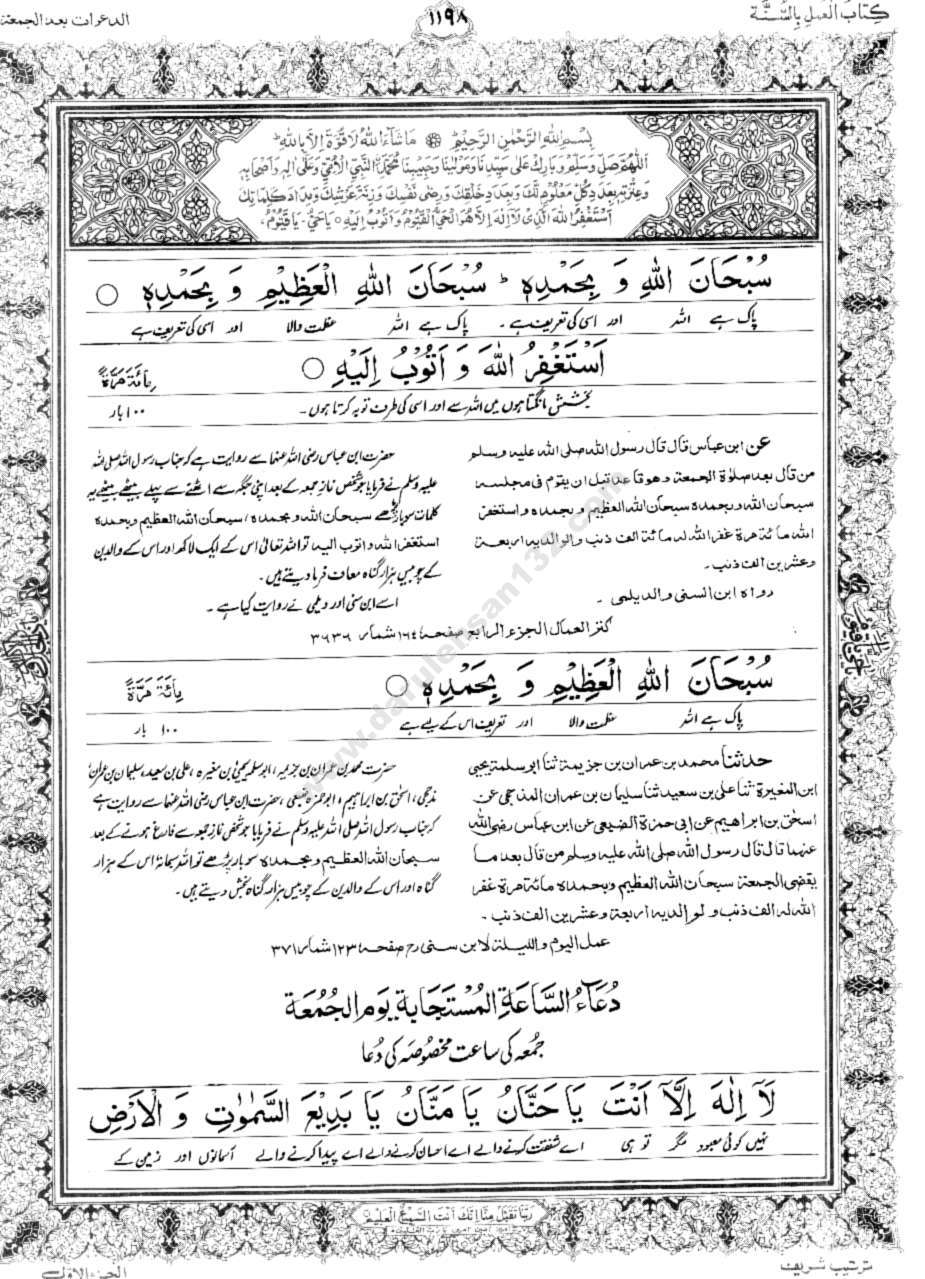 كتاب العمل بالسنة
۱۱۹۸
الدعوات بعد الجمعة
بِسْمِ اللهِ الرَّحْمٰنِ الرَّحِيْمِ مَا شَآءَ اللهُ لَا قُوَّةَ اِلَّا بِاللهِ
اَللّٰهُمَّ صَلِّ وَسَلِّمْ وَبَارِكْ عَلٰى سَيِّدِنَا وَمَوْلَانَا وَحَبِيْبِنَا مُحَمَّدِ النَّبِيِّ الْاُمِّيِّ وَعَلٰى اٰلِهٖ وَاَصْحَابِهٖ
وَعِتْرَتِهٖ بِعَدَدِ كُلِّ مَعْلُوْمٍ لَّكَ وَبِعَدَدِ خَلْقِكَ وَرِضٰى نَفْسِكَ وَزِنَةَ عَرْشِكَ وَمِدَادَ كَلِمَاتِكَ
اَسْتَغْفِرُ اللهَ الَّذِىْ لَا اِلٰهَ اِلَّا هُوَ الْحَيُّ الْقَيُّوْمُ وَاَتُوْبُ اِلَيْهِ يَا حَيُّ يَا قَيُّوْمُ
سُبْحَانَ اللهِ وَ بِحَمْدِهٖ ط سُبْحَانَ اللهِ الْعَظِيْمِ وَ بِحَمْدِهٖ ○
پاک ہے اللہ اور اسی کی تعریف ہے ۔ پاک ہے اللہ عظمت والا اور اسی کی تعریف ہے
اَسْتَغْفِرُ اللهَ وَ اَتُوْبُ اِلَيْهِ ○ مِائَةَ مَرَّةٍ
بخشش مانگتا ہوں میں اللہ سے اور اسی کی طرف توبہ کرتا ہوں۔ ۱۰۰ بار
عن ابن عباس قال قال رسول الله صلى الله عليه وسلم
من قال بعد صلوٰة الجمعة وهو قاعد قبل ان يقوم فى مجلسه
سبحان الله وبحمده سبحان الله العظيم وبحمده واستغفر
الله مائة مرة غفر الله له مائة الف ذنب ولوالديه اربعة
وعشرين الف ذنب۔
رواه ابن السنى والديلمى ۔
حضرت ابن عباس رضی اللہ عنہما سے روایت ہے کہ جناب رسول اللہ صلی اللہ
علیہ وسلم نے فرمایا جو شخص نماز جمعہ کے بعد اپنی جگہ سے اٹھنے سے پہلے بیٹھے بیٹھے یہ
کلمات سو بار پڑھے سبحان الله وبحمده، سبحان الله العظيم وبحمده
استغفر الله واتوب اليه تو اللہ تعالیٰ اس کے ایک لاکھ اور اس کے والدین
کے چوبیس ہزار گناہ معاف فرما دیتے ہیں۔
اسے ابن سنی اور دیلمی نے روایت کیا ہے ۔
كنز العمال الجزء الرابع صفحه ۱۶۴ شمار ۳۶۳۶
سُبْحَانَ اللهِ الْعَظِيْمِ وَ بِحَمْدِهٖ ○ مِائَةَ مَرَّةٍ
پاک ہے اللہ عظمت والا اور تعریف اس کے لیے ہے ۱۰۰ بار
حدثنا محمد بن عمران بن جزيمة ثنا ابو سلمة يحيى
ابن المغيرة ثنا على بن سعيد ثنا سليمان بن عمران المذحجى عن
اسحٰق بن ابراهيم عن ابى حمزة الضبعى عن ابن عباس رضى الله
عنهما قال قال رسول الله صلى الله عليه وسلم من قال بعد ما
يقضى الجمعة سبحان الله العظيم وبحمده مائة مرة غفر
الله له الف ذنب ولوالديه اربعة وعشرين الف ذنب ۔
حضرت محمد بن عمران بن جزیمہ، ابو سلمہ یحییٰ بن مغیرہ، علی بن سعید، سلیمان بن عمران
مذحجی، اسحٰق بن ابراہیم، ابو حمزہ ضبعی، حضرت ابن عباس رضی اللہ عنہما سے روایت ہے
کہ جناب رسول اللہ صلی اللہ علیہ وسلم نے فرمایا جو شخص نماز جمعہ سے فارغ ہونے کے بعد
سبحان الله العظيم وبحمده سو بار پڑھے تو اللہ سبحانہٗ اس کے ہزار
گناہ اور اس کے والدین کے چوبیس ہزار گناہ بخش دیتے ہیں۔
عمل اليوم والليلة لابن سنى رح صفحه ۱۲۳ شمار ۳۷۱
دُعَاءُ السَّاعَةِ الْمُسْتَجَابَةِ يَوْمَ الْجُمُعَةِ
جمعہ کی ساعت مخصوصہ کی دُعا
لَآ اِلٰهَ اِلَّآ اَنْتَ يَا حَنَّانُ يَا مَنَّانُ يَا بَدِيْعَ السَّمٰوٰتِ وَ الْاَرْضِ
نہیں کوئی معبود مگر تو ہی اے شفقت کرنے والے اے احسان کرنے والے اے پیدا کرنے والے آسمانوں اور زمین کے
رَبَّنَا تَقَبَّلْ مِنَّا اِنَّكَ اَنْتَ السَّمِيْعُ الْعَلِيْمُ
ترتيب شريف
الجزء الاول
www.darulehsan132.com